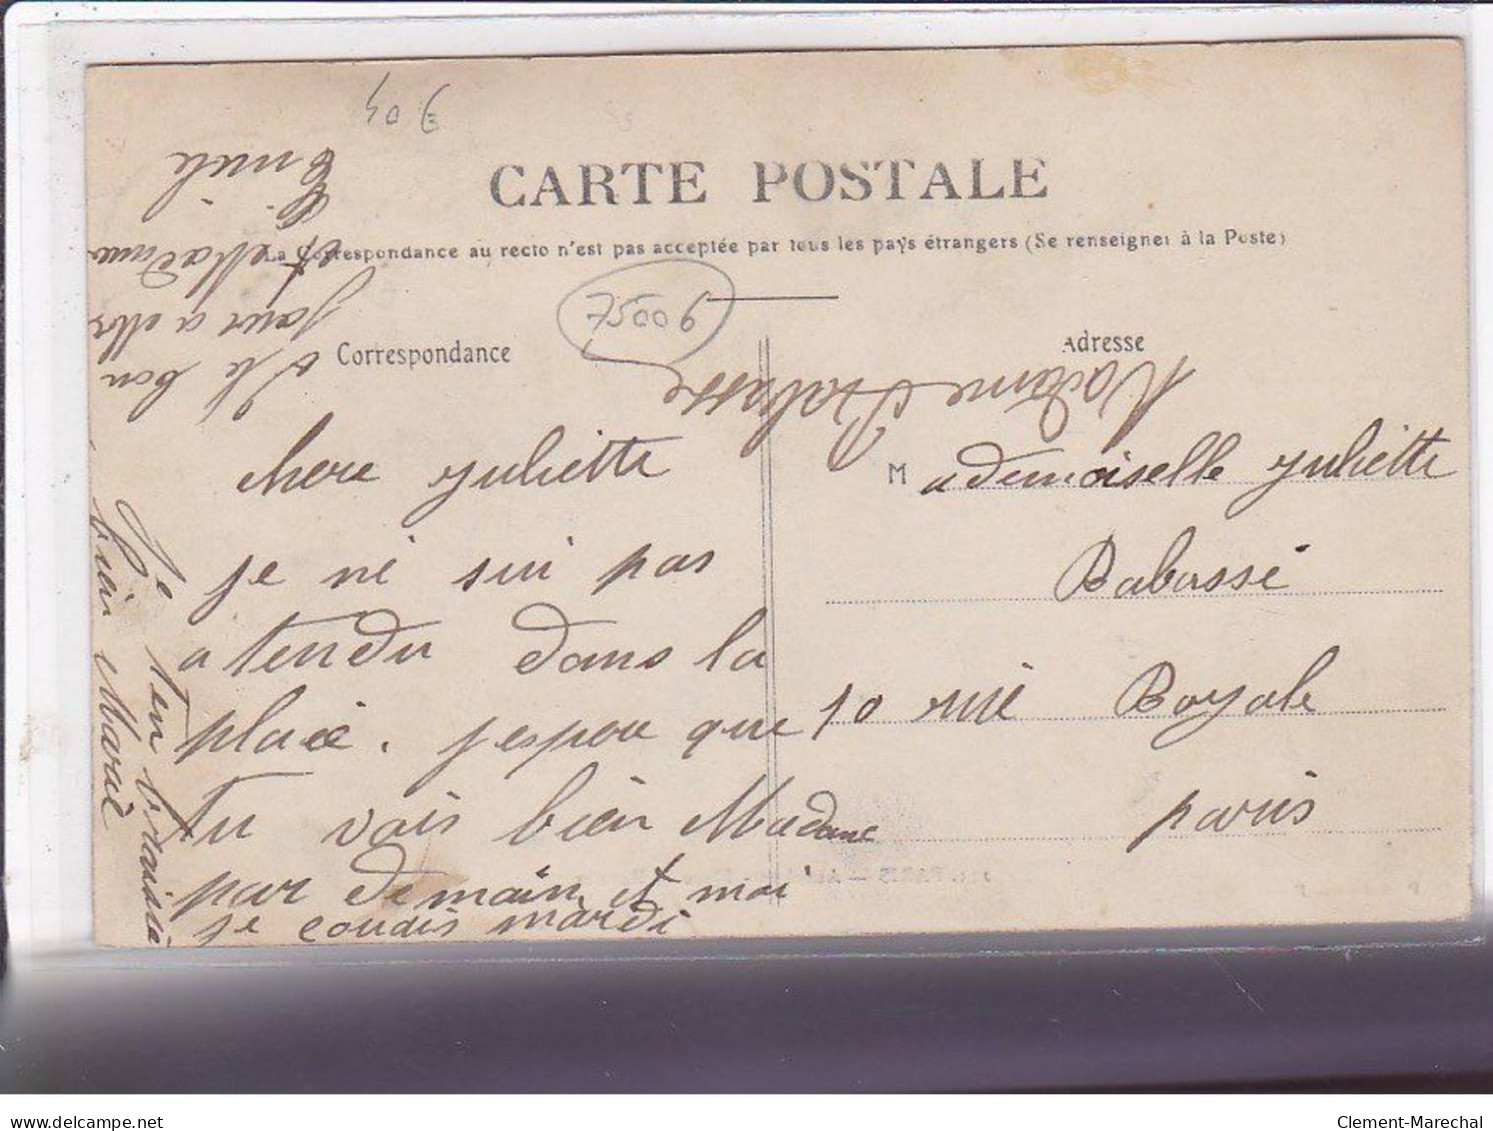 40 €
CARTE POSTALE
La Correspondance au recto n'est pas acceptée par tous les pays étrangers (Se renseigner à la Poste)
75006
Correspondance
chere Juliette
je ne sui pas
atendu dans la
place. j espere que
tu vois bien Madame
par demain et moi
je coudis mardi
Je ten braisse
bien
le bon
jour a
et Madame
Emile
Adresse
Madame Babasse
Mademoiselle Juliette
Babassé
10 rue Royale
paris
delcampe.net
Clement-Marechal